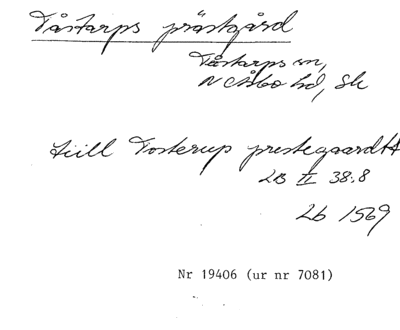 Tåstarps prästgård
Tåstarps sn,
N Åsbo hd, Sk
till Tosterup prestegaardtt
LB II 38:8
Lb 1569
Nr 19406 (ur nr 7081)